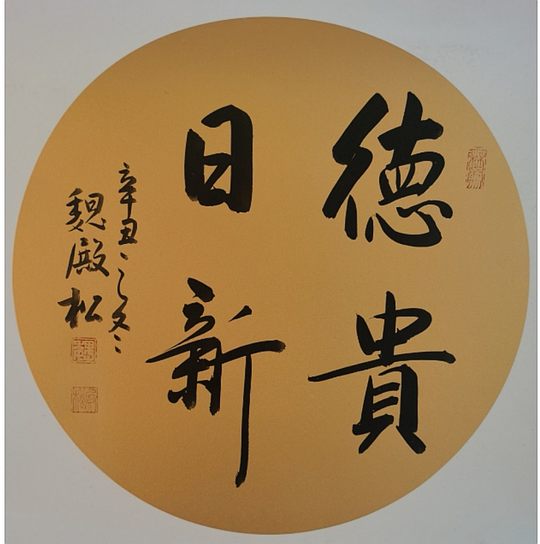 德貴
日新
辛丑之冬
魏殿松